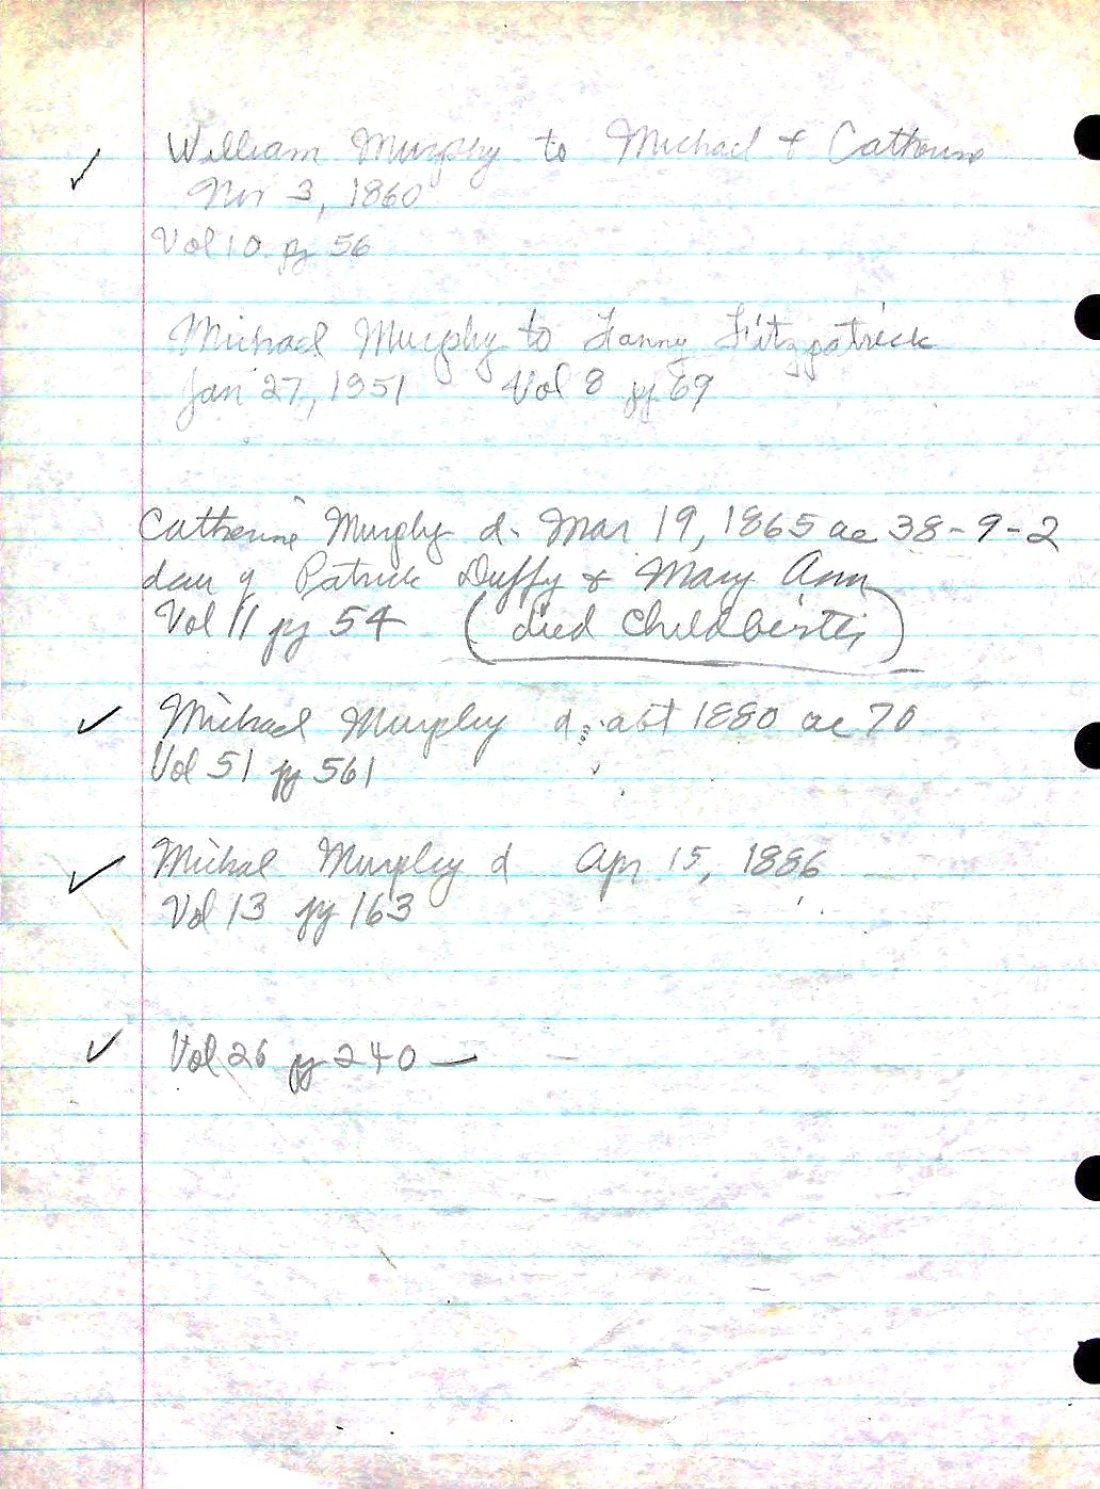 ✓ William Murphy to Michael + Catherine
Nov 3, 1860
Vol 10 pg 56
Michael Murphy to Fanny Fitzpatrick
Jan 27, 1851 Vol 8 pg 69
Catherine Murphy d. Mar 19, 1865 ae 38-9-2
dau of Patrick Duffy & Mary Ann
Vol 11 pg 54 (died childbirth)
✓ Michael Murphy d. abt 1880 ae 70
Vol 51 pg 561
✓ Michal Murphy d Apr 15, 1886
Vol 13 pg 163
✓ Vol 26 pg 240 —